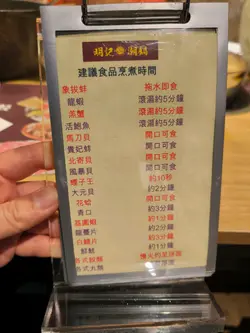 明記 潮鍋
建議食品烹煮時間
象拔蚌 拖水即食
龍蝦 滾湯約5分鐘
羔蟹 滾湯約5分鐘
活鮑魚 滾湯約5分鐘
馬刀貝 開口可食
貴妃蚌 開口可食
北寄貝 開口可食
風暴貝 開口可食
螺子王 約10秒
大元貝 約2分鐘
花蛤 開口可食
青口 約3分鐘
約1分鐘
龍躉片 約2分鐘
白鱔片 約3分鐘
鮮魷 約1分鐘
各式丸類